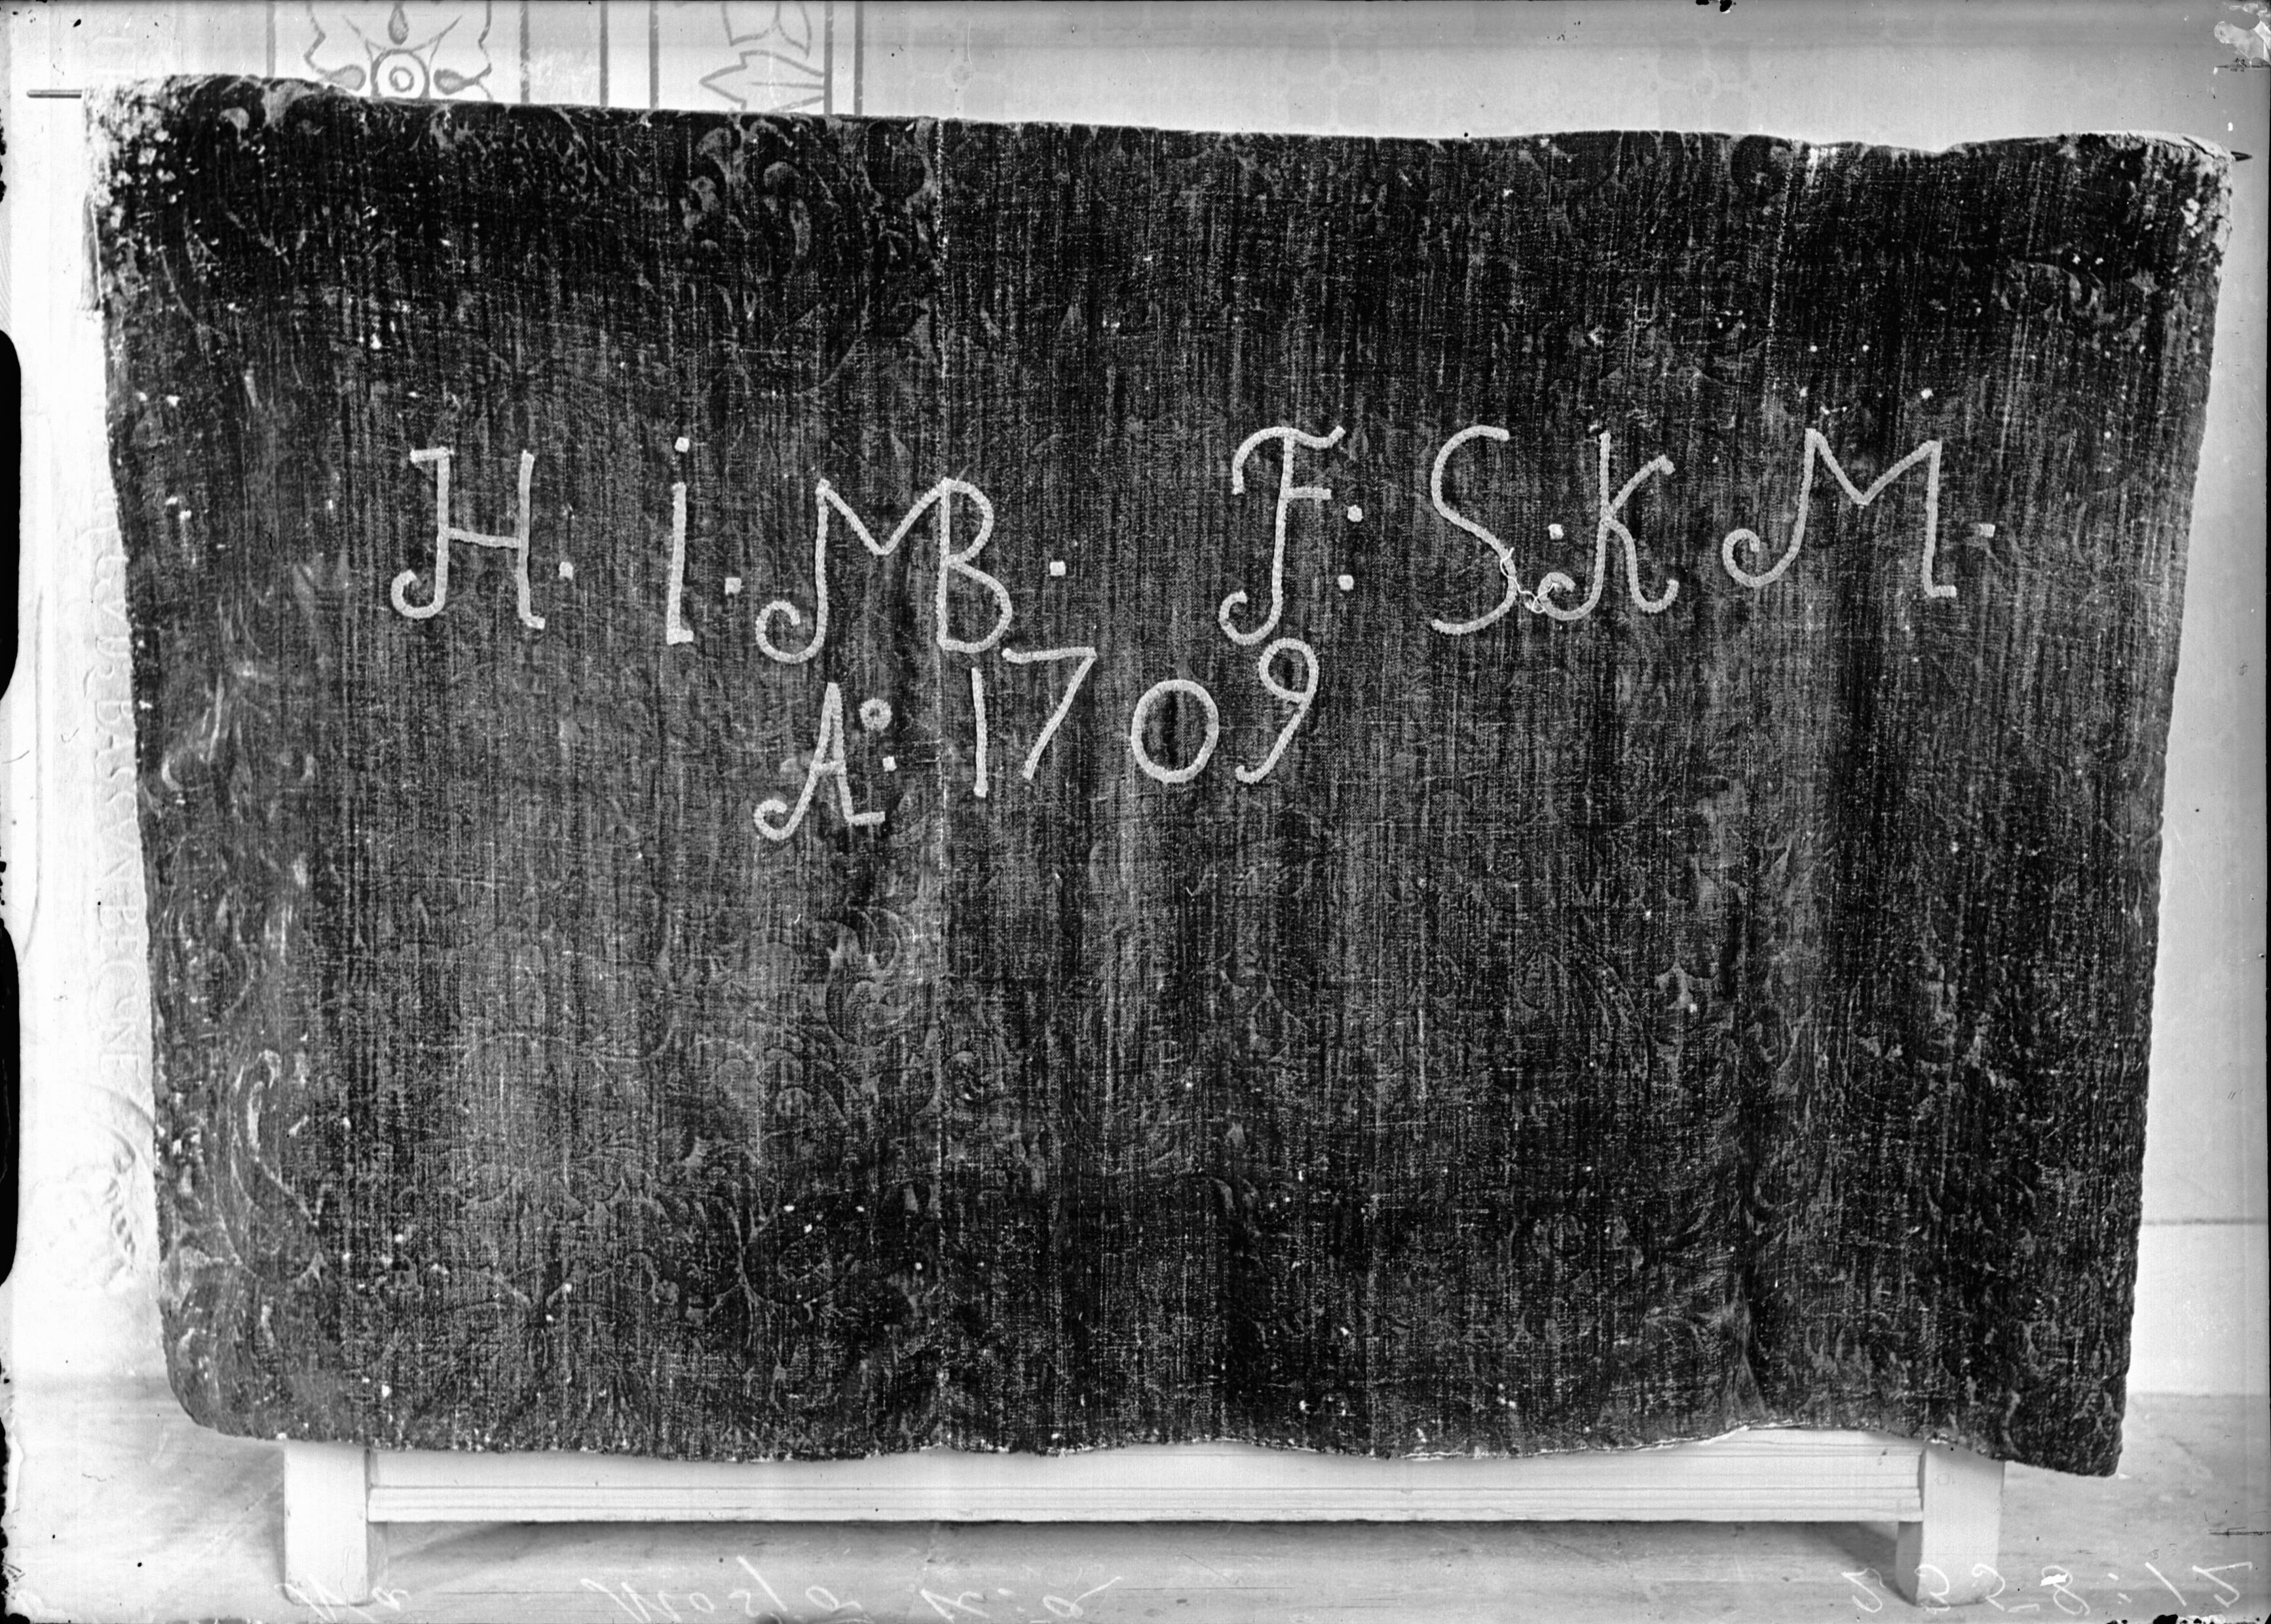 H. I. MB. F: S. K M.
A°: 1709